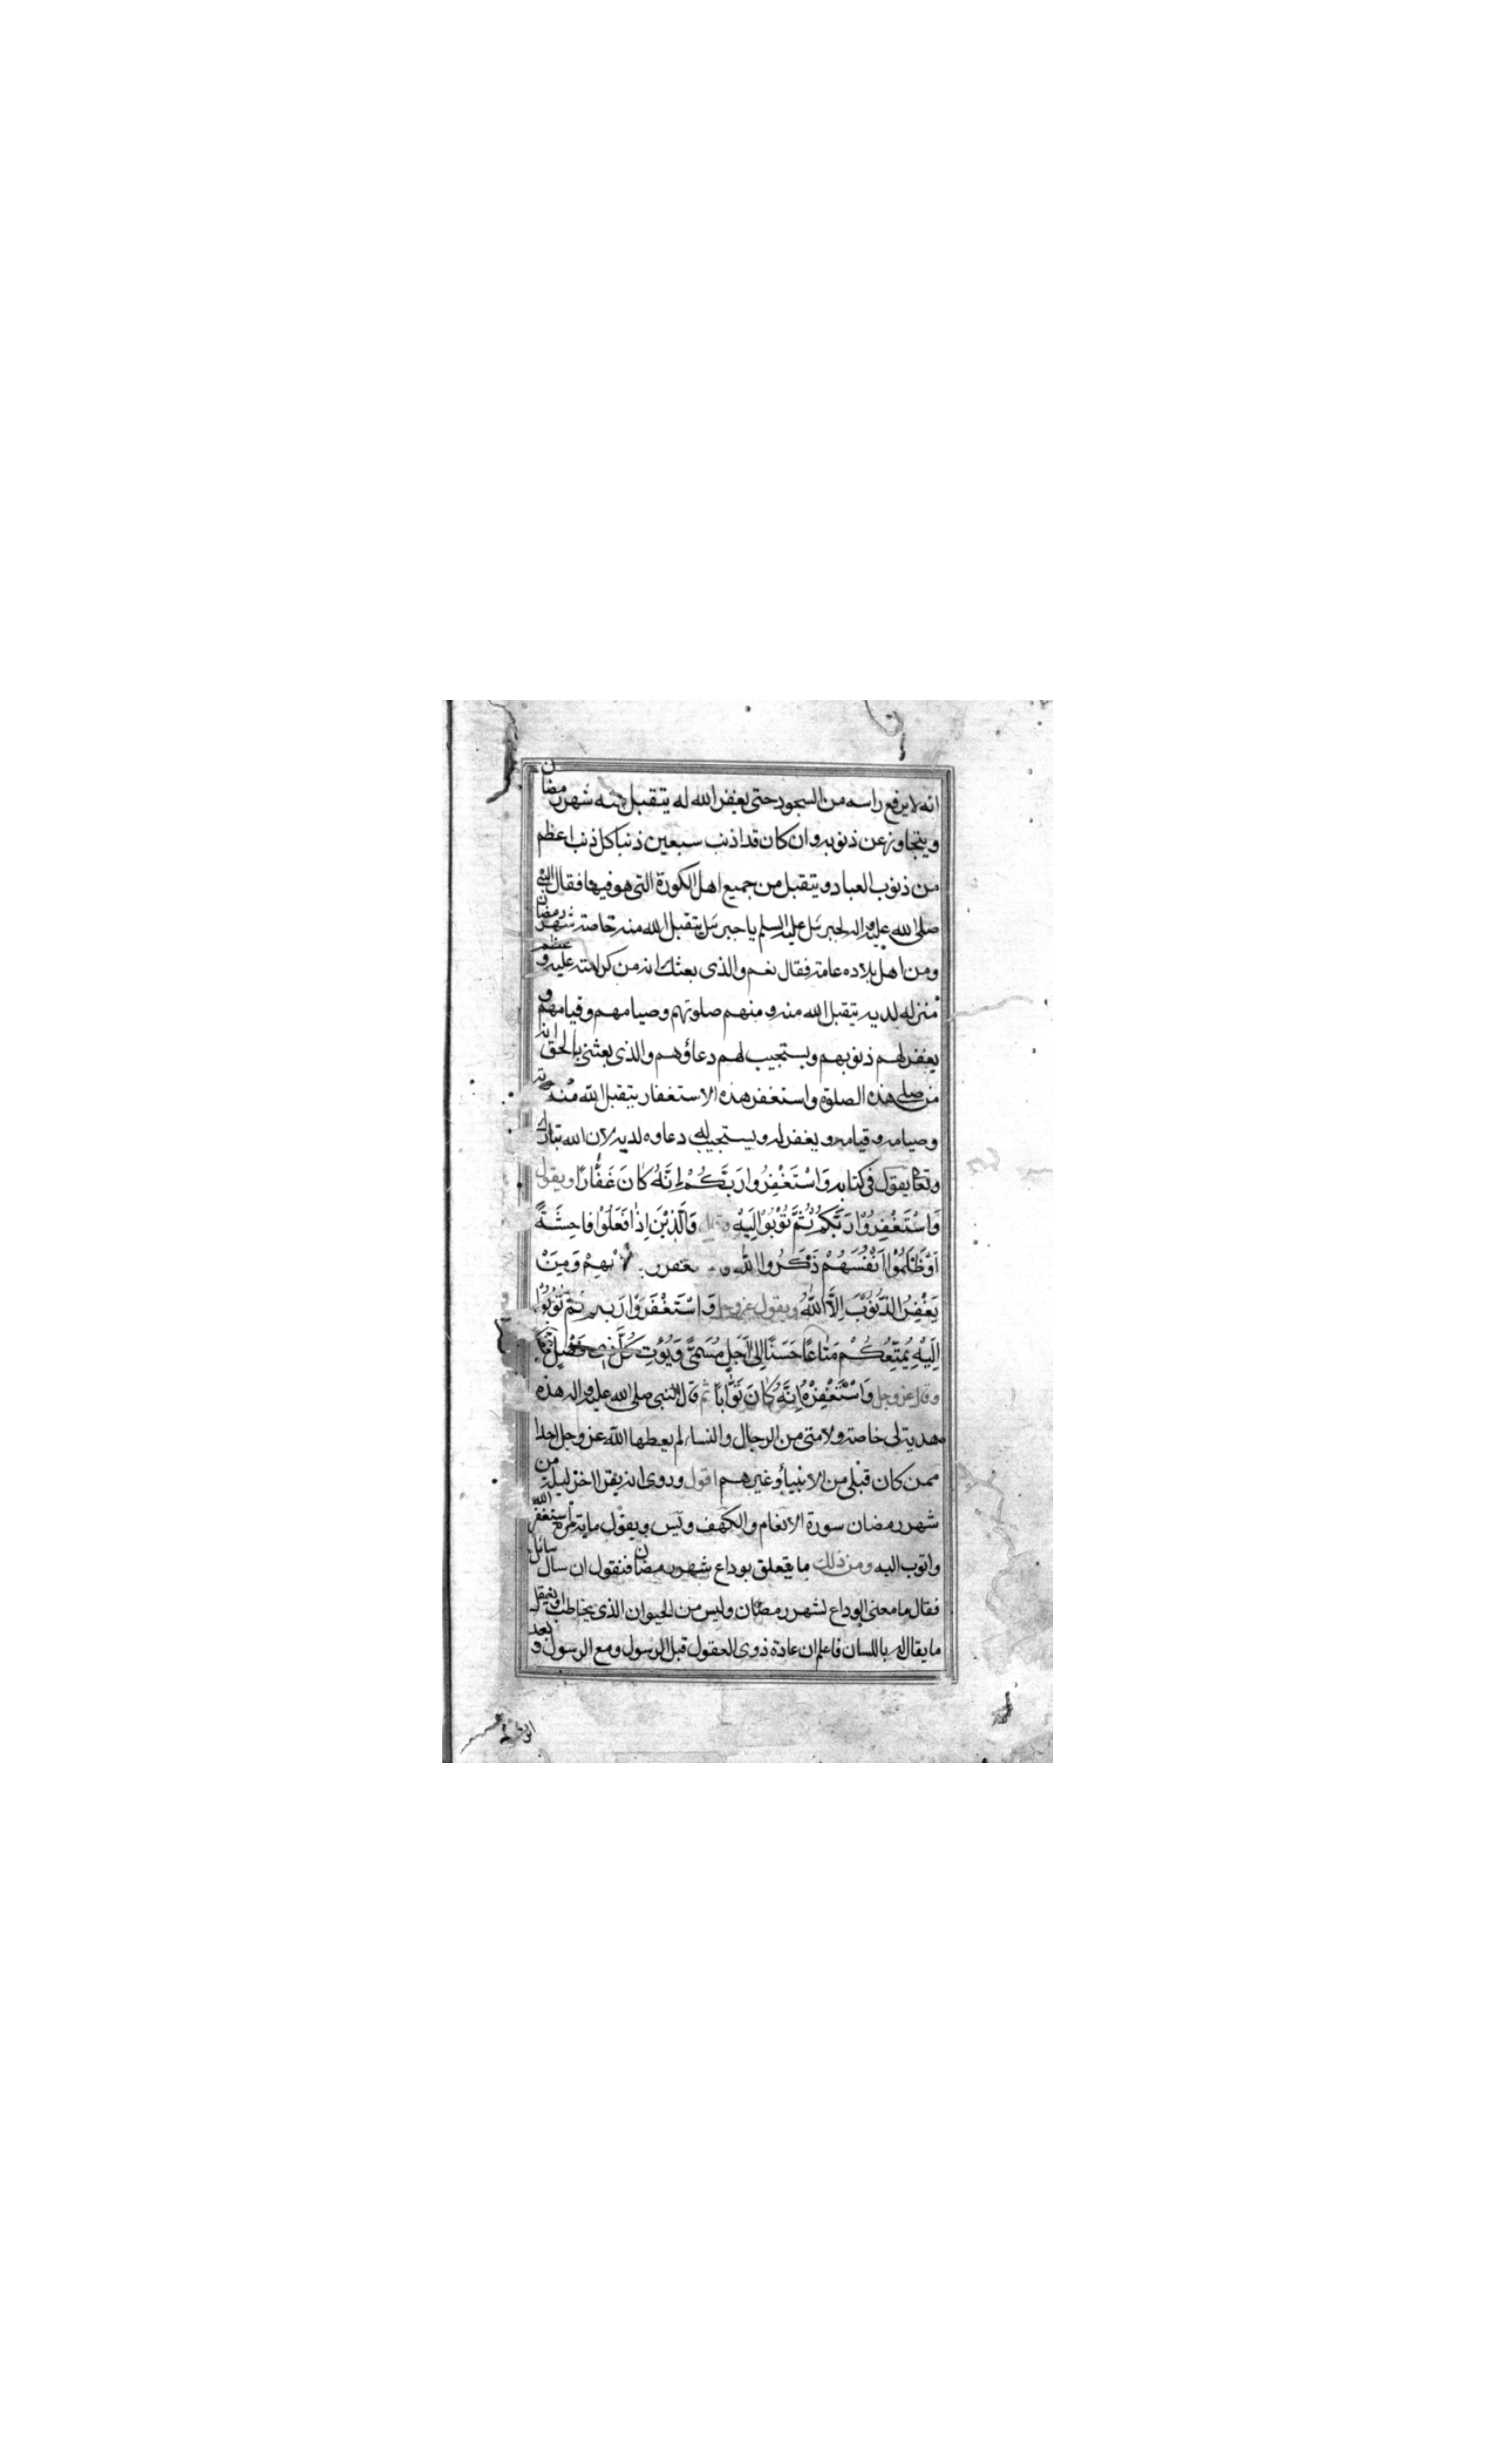 انه لا يرفع راسه من السجود حتى يغفر الله له يتقبل منه شهر رمضان
ويتجاوز عن ذنوبه وان كان قد اذنب سبعين ذنبا كل ذنب اعظم
من ذنوب العباد ويتقبل من جميع اهل الكورة التى هو فيها فقال النبى
صلى الله عليه واله لجبرئيل عليه السلم يا جبرئيل يتقبل الله منه خاصة شهر رمضان
ومن اهل بلاده عامة فقال نعم والذى بعثك انه من كرامته عليه وعظم
منزله لديه يتقبل الله منه ومنهم صلوتهم وصيامهم وقيامهم و
يغفر لهم ذنوبهم ويستجيب لهم دعاؤهم والذى بعثنى بالحق انه
من صلى هذه الصلوة واستغفر هذه الاستغفار يتقبل الله منه
وصيامه وقيامه ويغفر له ويستجيب له دعاوه لديه لان الله تبارك
وتعالى يقول فى كتابه وَاسْتَغْفِرُوا رَبَّكُمْ اِنَّهُ كَانَ غَفَّارًا ويقول
وَاسْتَغْفِرُوا رَبَّكُمْ ثُمَّ تُوْبُوْا اِلَيْهِ وَالَّذِيْنَ اِذَا فَعَلُوْا فَاحِشَةً
اَوْ ظَلَمُوْا اَنْفُسَهُمْ ذَكَرُوا اللهَ وَمَنْ
يَغْفِرُ الذُّنُوْبَ اِلَّا اللهُ ويقول عز وجل وَاسْتَغْفِرُوْا رَبَّكُمْ ثُمَّ تُوْبُوْا
اِلَيْهِ يُمَتِّعْكُمْ مَتَاعًا حَسَنًا اِلٰى اَجَلٍ مُسَمًّى وَيُؤْتِ كُلَّ
وقال عز وجل وَاسْتَغْفِرْهُ اِنَّهُ كَانَ تَوَّابًا ثم قال النبى صلى الله عليه واله هذه
هدية لى خاصة ولامتى من الرجال والنساء لم يعطها الله عز وجل احدا
ممن كان قبلى من الانبياء وغيرهم اقول وروى انه يقرا اخر ليلة من
شهر رمضان سورة الانعام والكهف ويس ويقول ماية مرة استغفر الله
واتوب اليه ومن ذلك ما يتعلق بوداع شهر رمضان فنقول ان سال سائل
فقال ما معنى الوداع لشهر رمضان وليس من الحيوان الذى يخاطب او يعقل
ما يقال له باللسان فاعلم ان عادة ذوى العقول قبل الرسول ومع الرسول وبعد